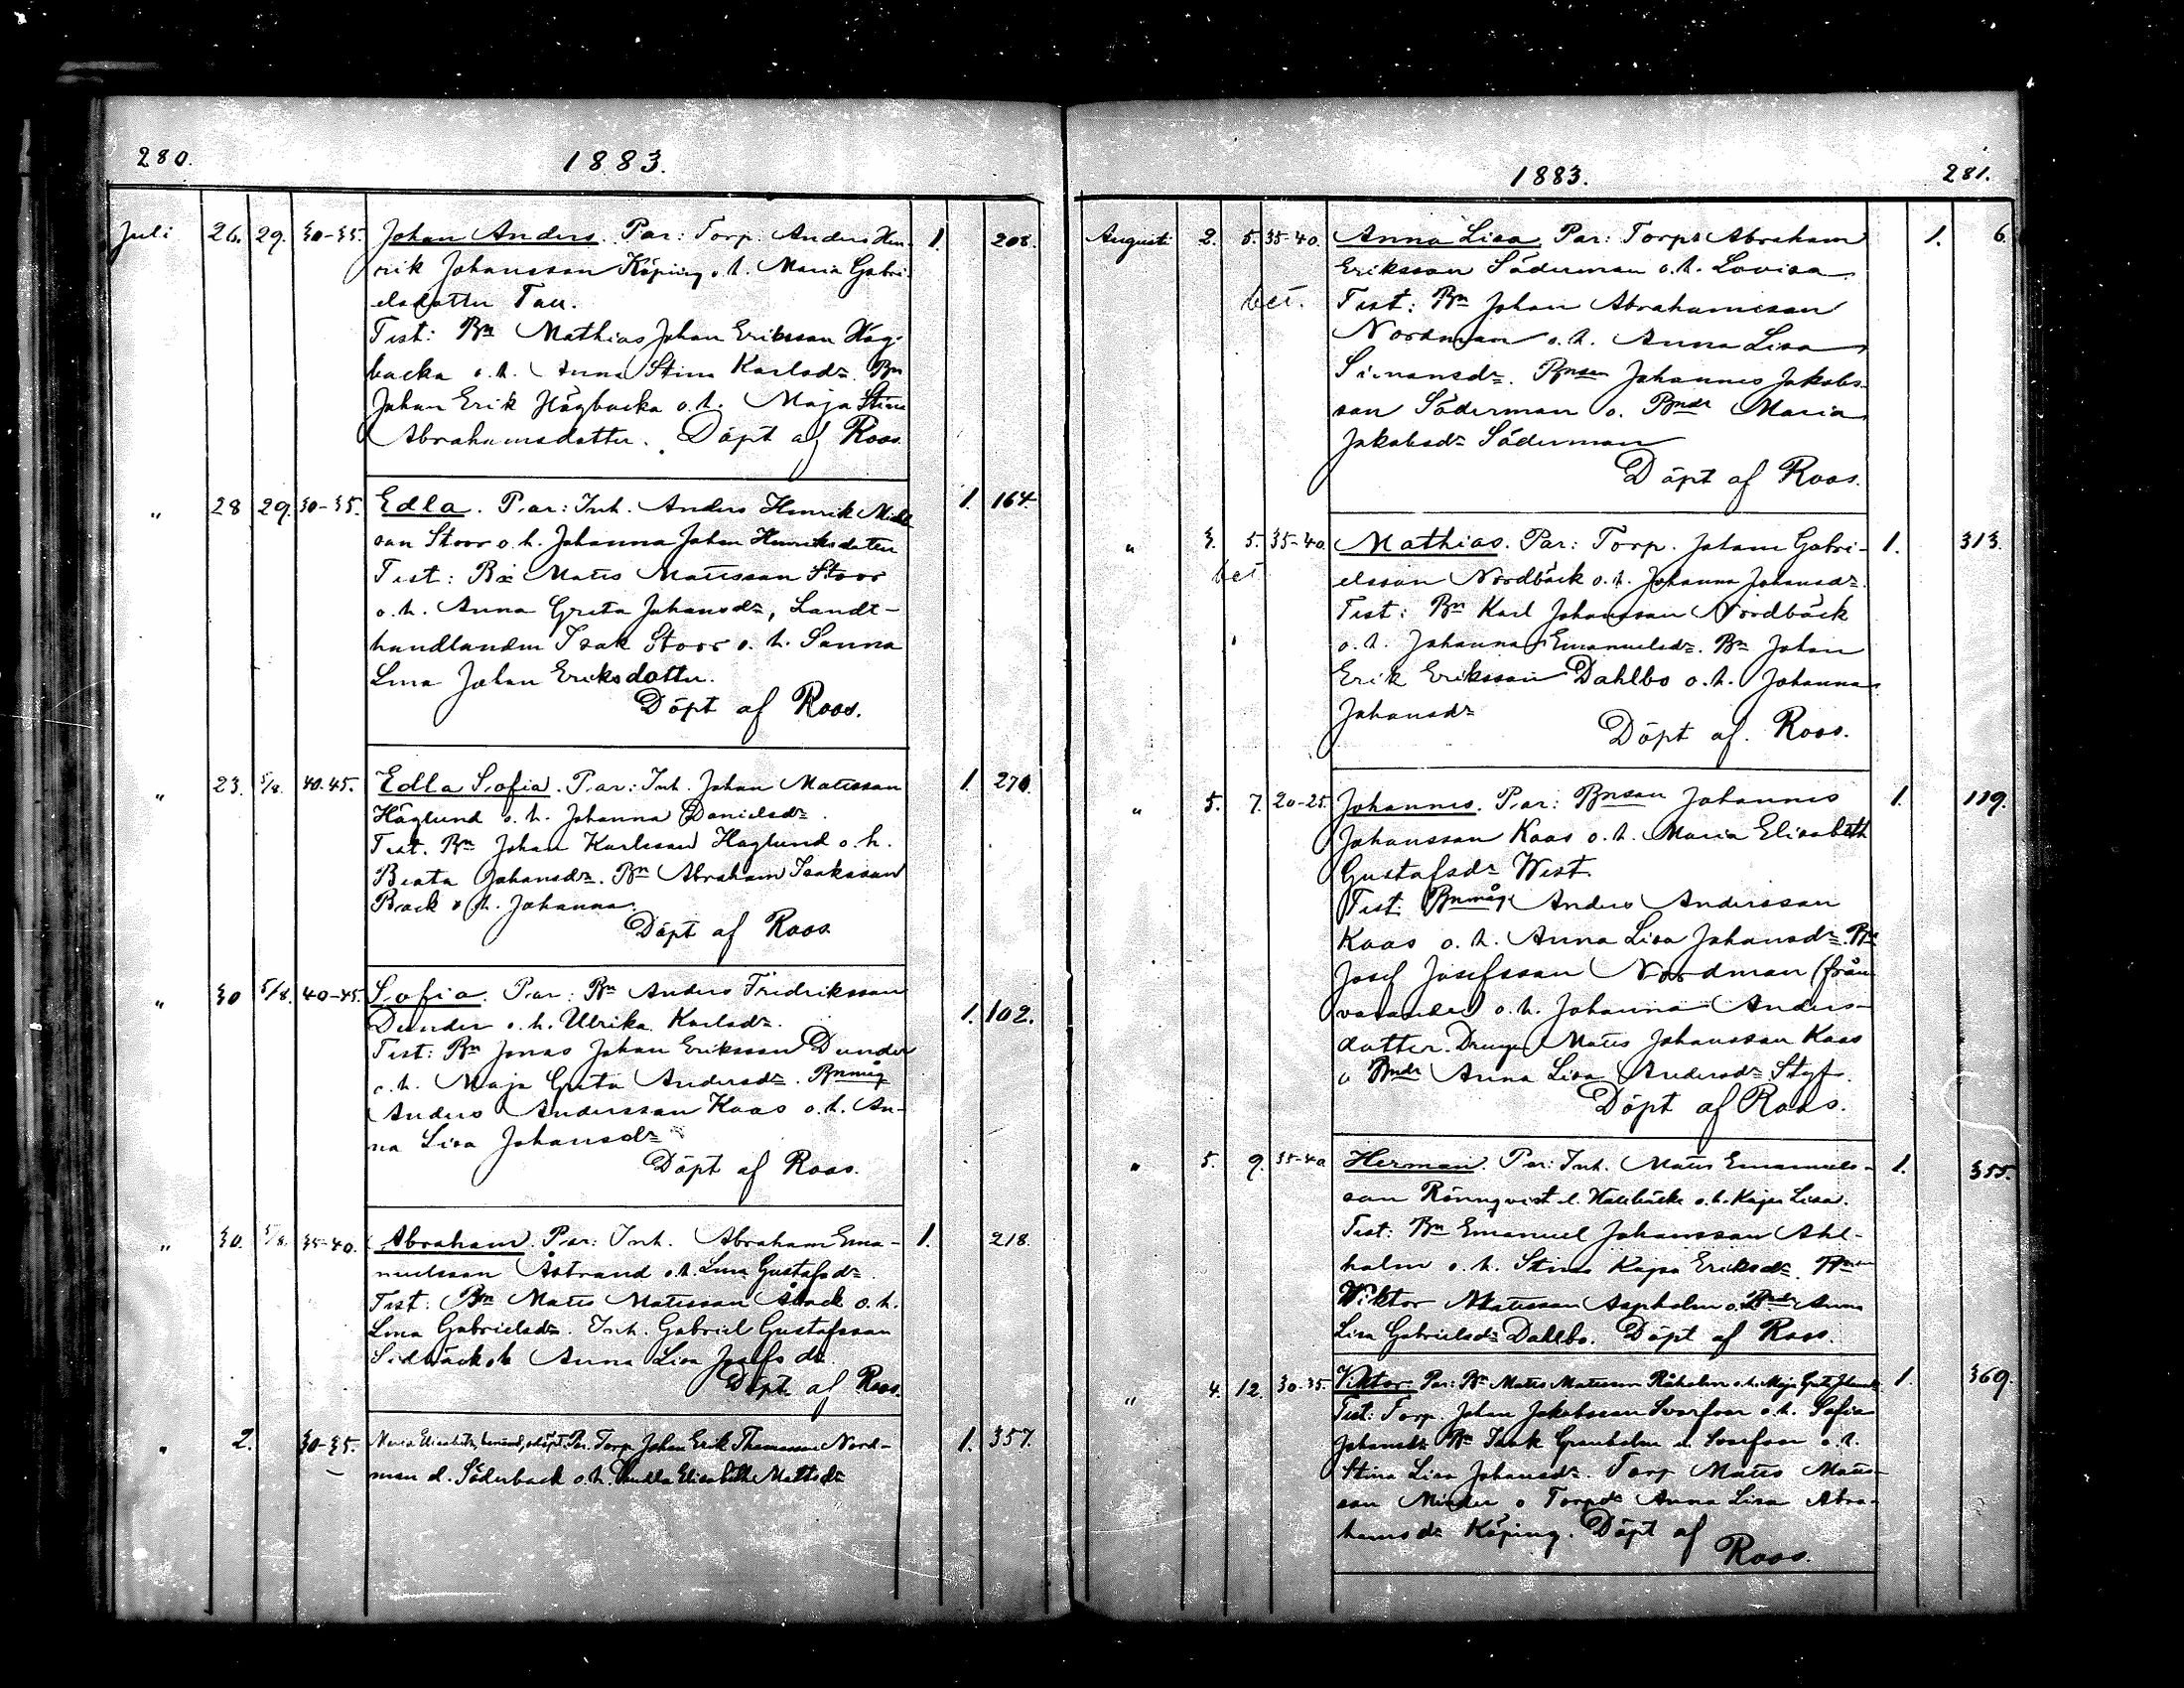 280.
1883.
Juli 26. 29. 30-35. Johan Anders. Par: Torp. Anders Hen- 1. 208.
rik Johansson Köping o. h. Maria Gabri-
elsdotter
Test: Bn Mathias Johan Eriksson Hög-
backa o. h. Anna Stina Karlsdr. Bn
Johan Erik Högbacka o. h. Maja Stina
Abrahamsdotter. Döpt af Roos.
" 28 29. 30-35. Edla. Par: Inh. Anders Henrik
son Stoor o. h. Johanna Johan Henriksdotter 1. 164.
Test: Bn Matts Mattsson Stoor
o. h. Anna Greta Johansdr, Landt-
handlanden Isak Stoor o. h. Sanna
Lena Johan Eriksdotter.
Döpt af Roos.
" 23. 5/8. 40-45. Edla Sofia. Par: Inh. Johan Mattsson 1. 270.
Häglund o. h. Johanna Danielsdr.
Test. Bn Johan Karlsson Häglund o. h.
Beata Johansdr. Bn Abraham Isaksson
Back o. h. Johanna.
Döpt af Roos.
" 30 5/8. 40-45. Sofia. Par: Bn Anders Fredriksson
Dunder o. h. Ulrika Karlsdr. 1. 102.
Test: Bn Jonas Johan Eriksson Dunder
o. h. Maja Greta Andersdr. Bnmåg
Anders Andersson Kaas o. h. An-
na Lisa Johansdr
Döpt af Roos.
" 30. 5/8. 35-40. Abraham. Par: Inh. Abraham Ema- 1. 218.
nuelsson Åstrand o. h. Lena Gustafsdr.
Test: Bn Matts Mattsson o. h.
Lena Gabrielsdr. Inh. Gabriel Gustafsson
o. h. Anna Lisa Josefsdr.
Döpt af Roos.
" 2. 30-35. Par. Torp. Johan Erik Thomasson Nord- 1. 357.
man d. Söderback o. h. Elisabeth Mattsdr
1883.
281.
Augusti 2. 5. 35-40. Anna Lisa. Par: Torp. Abraham 1. 6.
Eriksson Söderman o. h. Lovisa
bet. Test: Bn Johan Abrahamsson
Nordman o. h. Anna Lisa
Simonsdr. Bnson Johannes Jakobs-
son Söderman o. Bndr Maria
Jakobsdr Söderman
Döpt af Roos.
" 3. 5. 35-40. Mathias. Par: Torp. Johan Gabri- 1. 313.
bet elsson Nordbäck o. h. Johanna Johansdr.
Test: Bn Karl Johansson Nordbäck
o. h. Johanna Emanuelsdr. Bn Johan
Erik Eriksson Dahlbo o. h. Johanna
Johansdr
Döpt af Roos.
" 5. 7. 20-25. Johannes. Par: Bnson Johannes 1. 119.
Johansson Kaas o. h. Maria Elisabeth
Gustafsdr West.
Test. Bnmåg Anders Andersson
Kaas o. h. Anna Lisa Johansdr. Bn
Josef Josefsson Nordman (från-
varande) o. h. Johanna Anders-
dotter. Dräng. Matts Johansson Kaas
o Bndr Anna Lisa Andersdr Styf.
Döpt af Roos.
" 5. 9. 35-40 Herman. Par: Inh. Matts Emanuels- 1. 355.
son Rönnqvist o. h. Kajsa Lisa.
Test: Bn Emanuel Johansson Ahl-
holm o. h. Stina Kajsa Eriksdr. Bnson
Wiktor Mattsson Aspholm o. Bndr Anna
Lisa Gabrielsdr Dahlbo. Döpt af Roos.
" 4. 12. 30-35. Viktor. Par: Bn Matts Mattsson o. h. Maja Greta 1. 369.
Test: Torp. Johan Jakobsson Svarfvar o. h. Sofia
Johansdr Bn Isak Granholm Svarfvar o. h.
Stina Lisa Johansdr. Torp Matts Matts-
son o Torpdr Anna Lisa Abra-
hamsdr Köping. Döpt af
Roos.